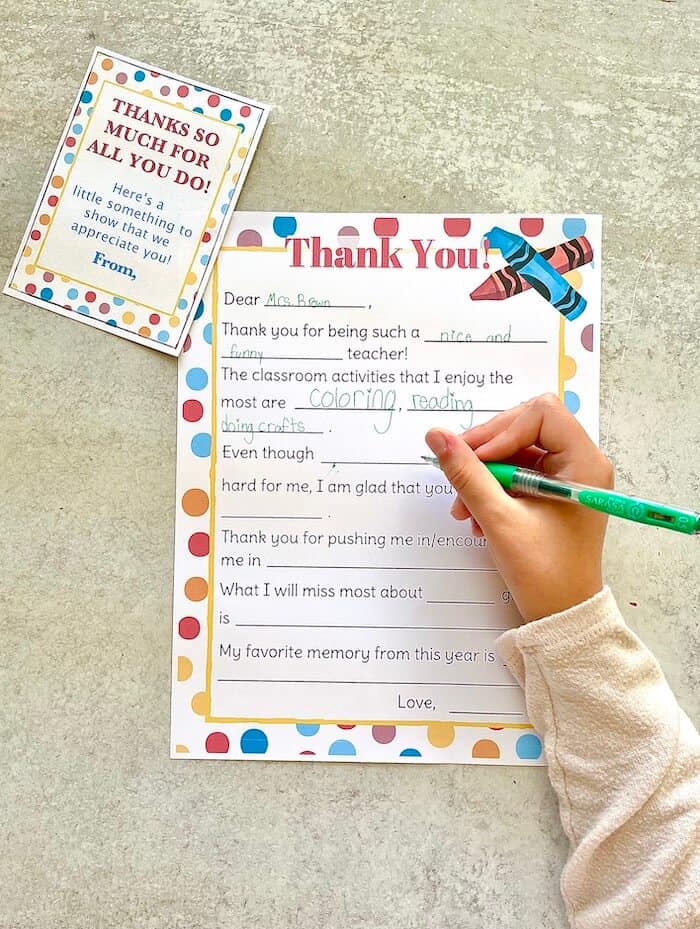 THANKS SO
MUCH FOR
ALL YOU DO!
Here's a
little something to
show that we
appreciate you!
From,
Thank You!
Dear Mrs. Brown,
Thank you for being such a nice and
funny teacher!
The classroom activities that I enjoy the
most are coloring, reading
doing crafts.
Even though
hard for me, I am glad that you
.
Thank you for pushing me in/encou
me in
What I will miss most about g
is
My favorite memory from this year is
Love,
SARASA